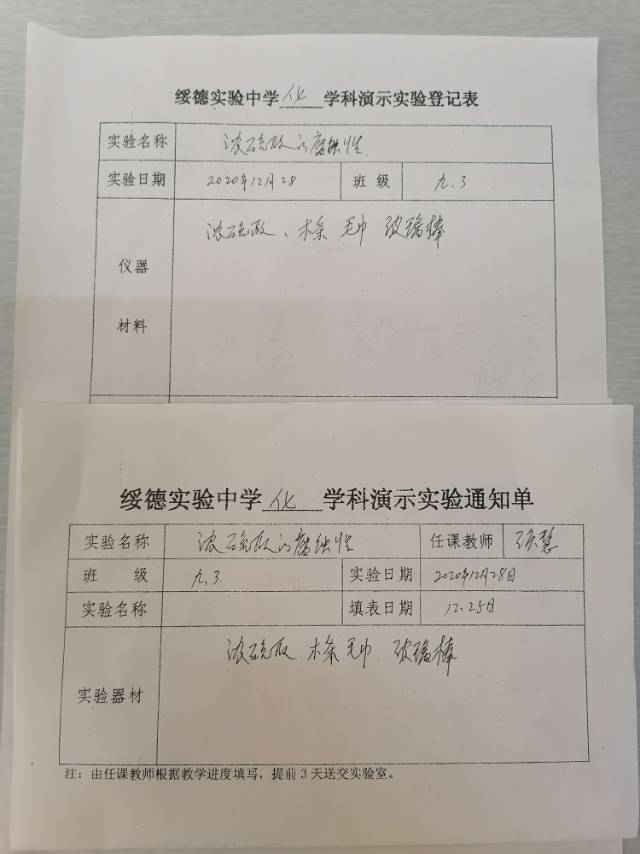 绥德实验中学化学科演示实验登记表
实验名称 浓硫酸的腐蚀性
实验日期 2020年12月28 班级 九.3
仪器
材料
浓硫酸、木条 毛巾 玻璃棒
绥德实验中学化学科演示实验通知单
实验名称 浓硫酸的腐蚀性 任课教师 张慧
班 级 九.3 实验日期 2020年12月28日
实验名称 填表日期 12.25日
实验器材 浓硫酸 木条 毛巾 玻璃棒
注：由任课教师根据教学进度填写，提前3天送交实验室。